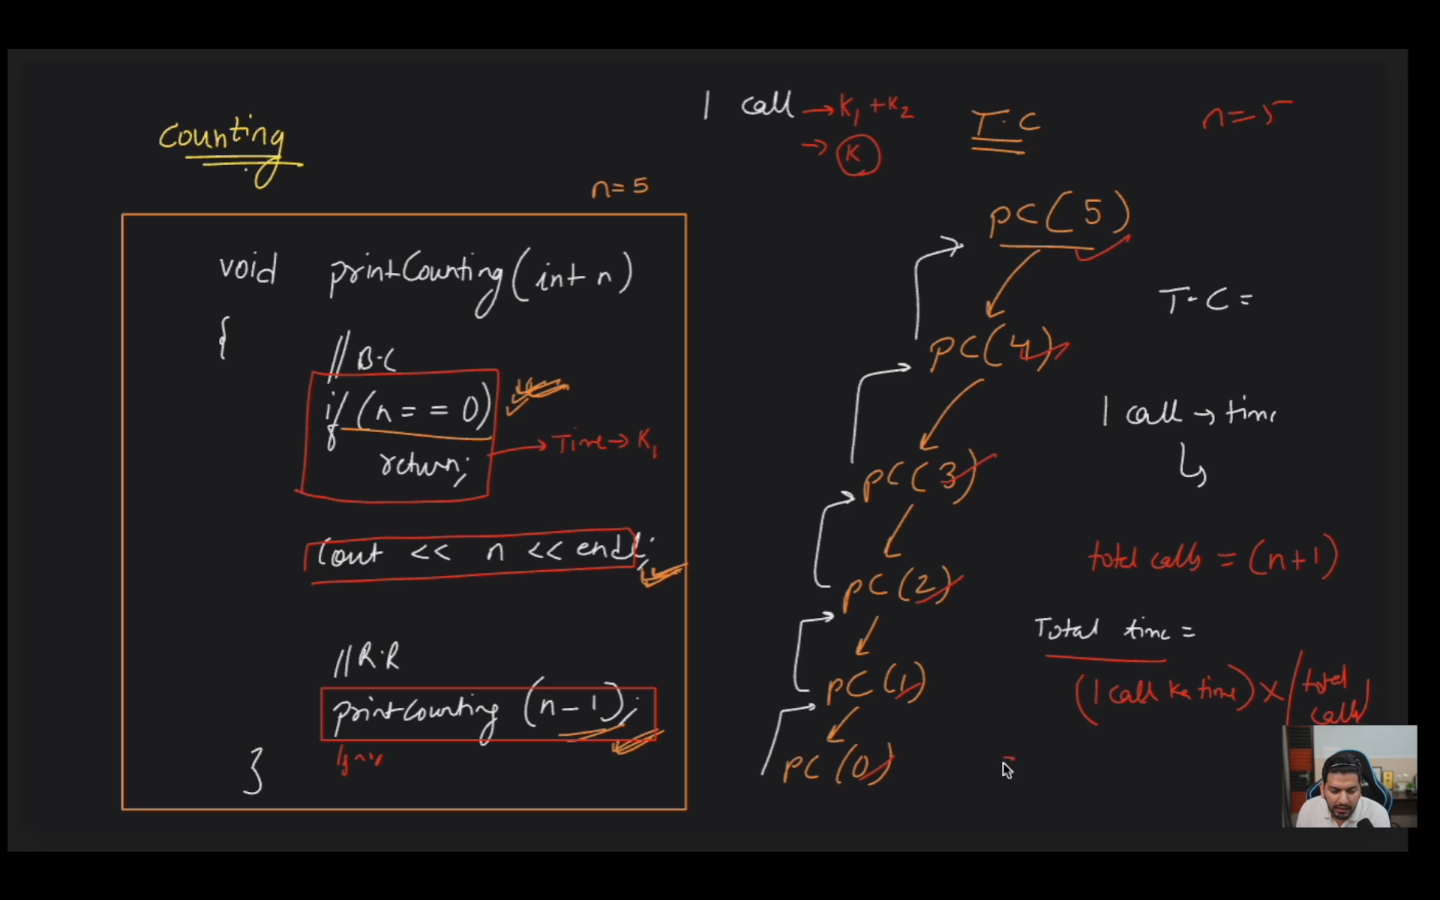 Counting
n=5
void printCounting(int n)
{
//B.C
if (n==0)
return;
→ Time → K₁
cout << n << endl;
//R.R
printCounting (n-1);
}
1 call → K₁+K₂
→ K
T.C
n=5
PC(5)
PC(4)
PC(3)
PC(2)
PC(1)
PC(0)
T.C =
1 call → time
total calls = (n+1)
Total time =
(1 call ka time) × (total calls)
=